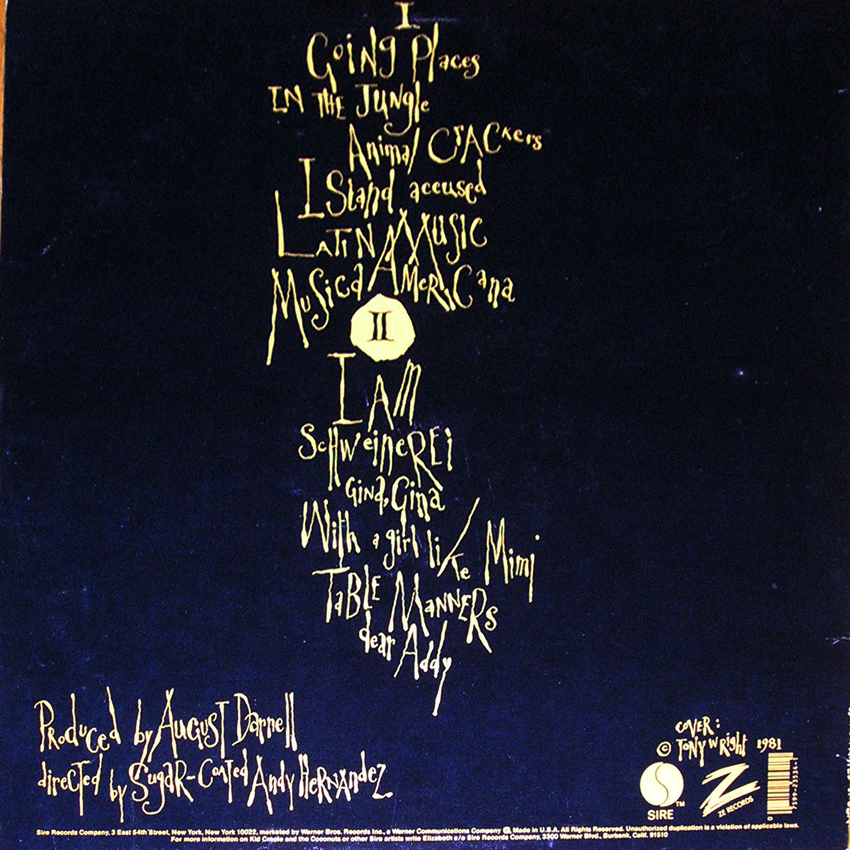 I
Going Places
IN THE JUNGLE
Animal CrACkers
I Stand accused
LATIN MUSIC
MUsica AMERICana
II
I AM
ScHWeineREi
Gina, Gina
With a girl like Mimi
TaBLE MANNERS
dear Addy
Produced by AUGUST Darnell
directed by SUgAR-COATED Andy HERNANDEZ
COVER:
© TONY WRight 1981
SIRE™
Z
ZE RECORDS
Sire Records Company, 3 East 54th Street, New York, New York 10022, marketed by Warner Bros. Records Inc., a Warner Communications Company Ⓦ, Made in U.S.A. All Rights Reserved. Unauthorized duplication is a violation of applicable laws.
For more information on Kid Creole and the Coconuts or other Sire artists write Elizabeth c/o Sire Records Company, 3300 Warner Blvd., Burbank, Calif. 91510